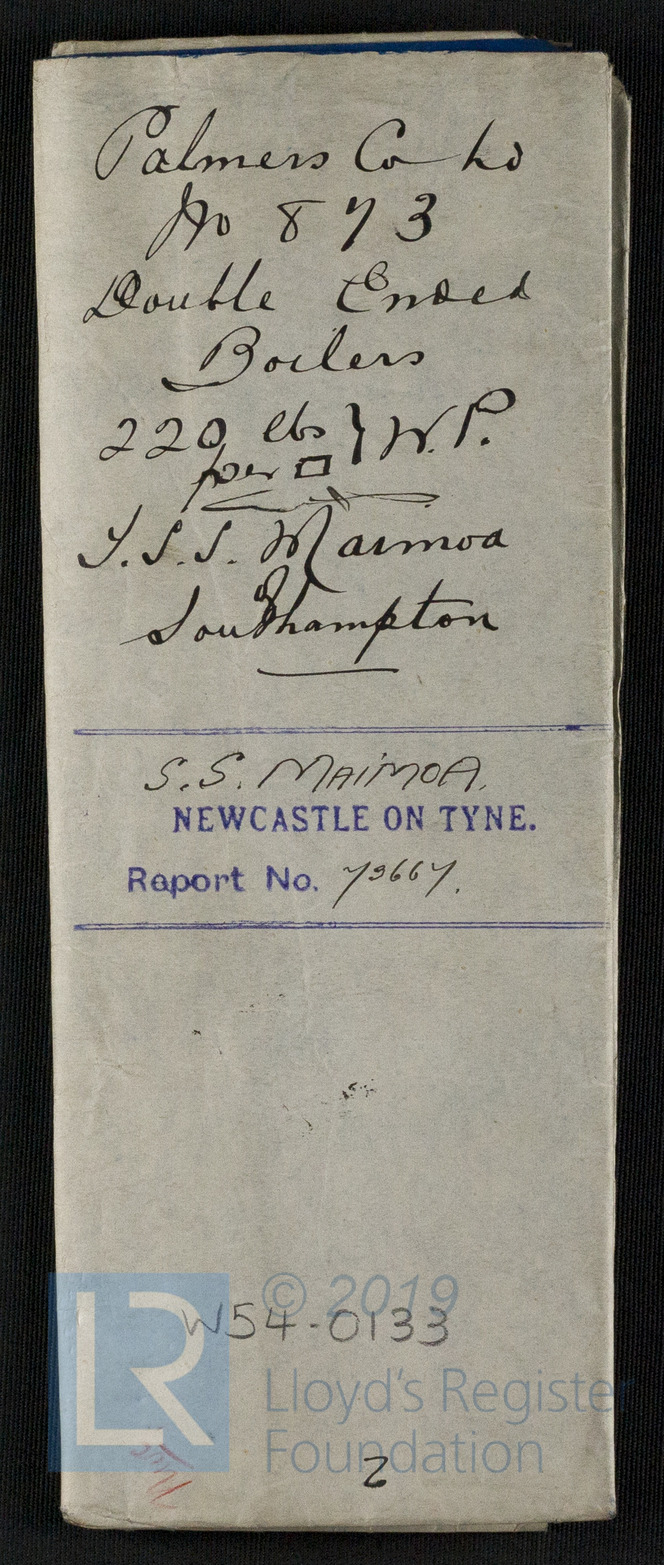 Palmers Co Ld
No 873
Double Ended
Boilers
220 lbs } W.P.
per □
T.S.S. Maimoa
of
Southampton
S.S. MAIMOA.
NEWCASTLE ON TYNE.
Report No. 73667.
© 2019
W54-0133
LR
Lloyd's Register
Foundation
2